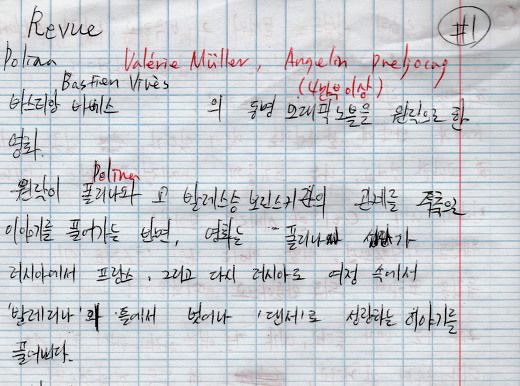 Revue #1
Polina Valérie Müller, Angelin Preljocaj
Bastien Vivès (4반부이상)
바스티앙 비베스 의 동명 그래픽노블을 원작으로 한
영화.
Polina
원작이 폴리나와 그 발레스승 보린스키의 관계를 주축으로
이야기를 풀어가는 반면, 영화는 폴리나가
러시아에서 프랑스, 그리고 다시 러시아로 여정 속에서
'발레리나'의 틀에서 벗어나 '댄서'로 성장하는 이야기를
풀어낸다.